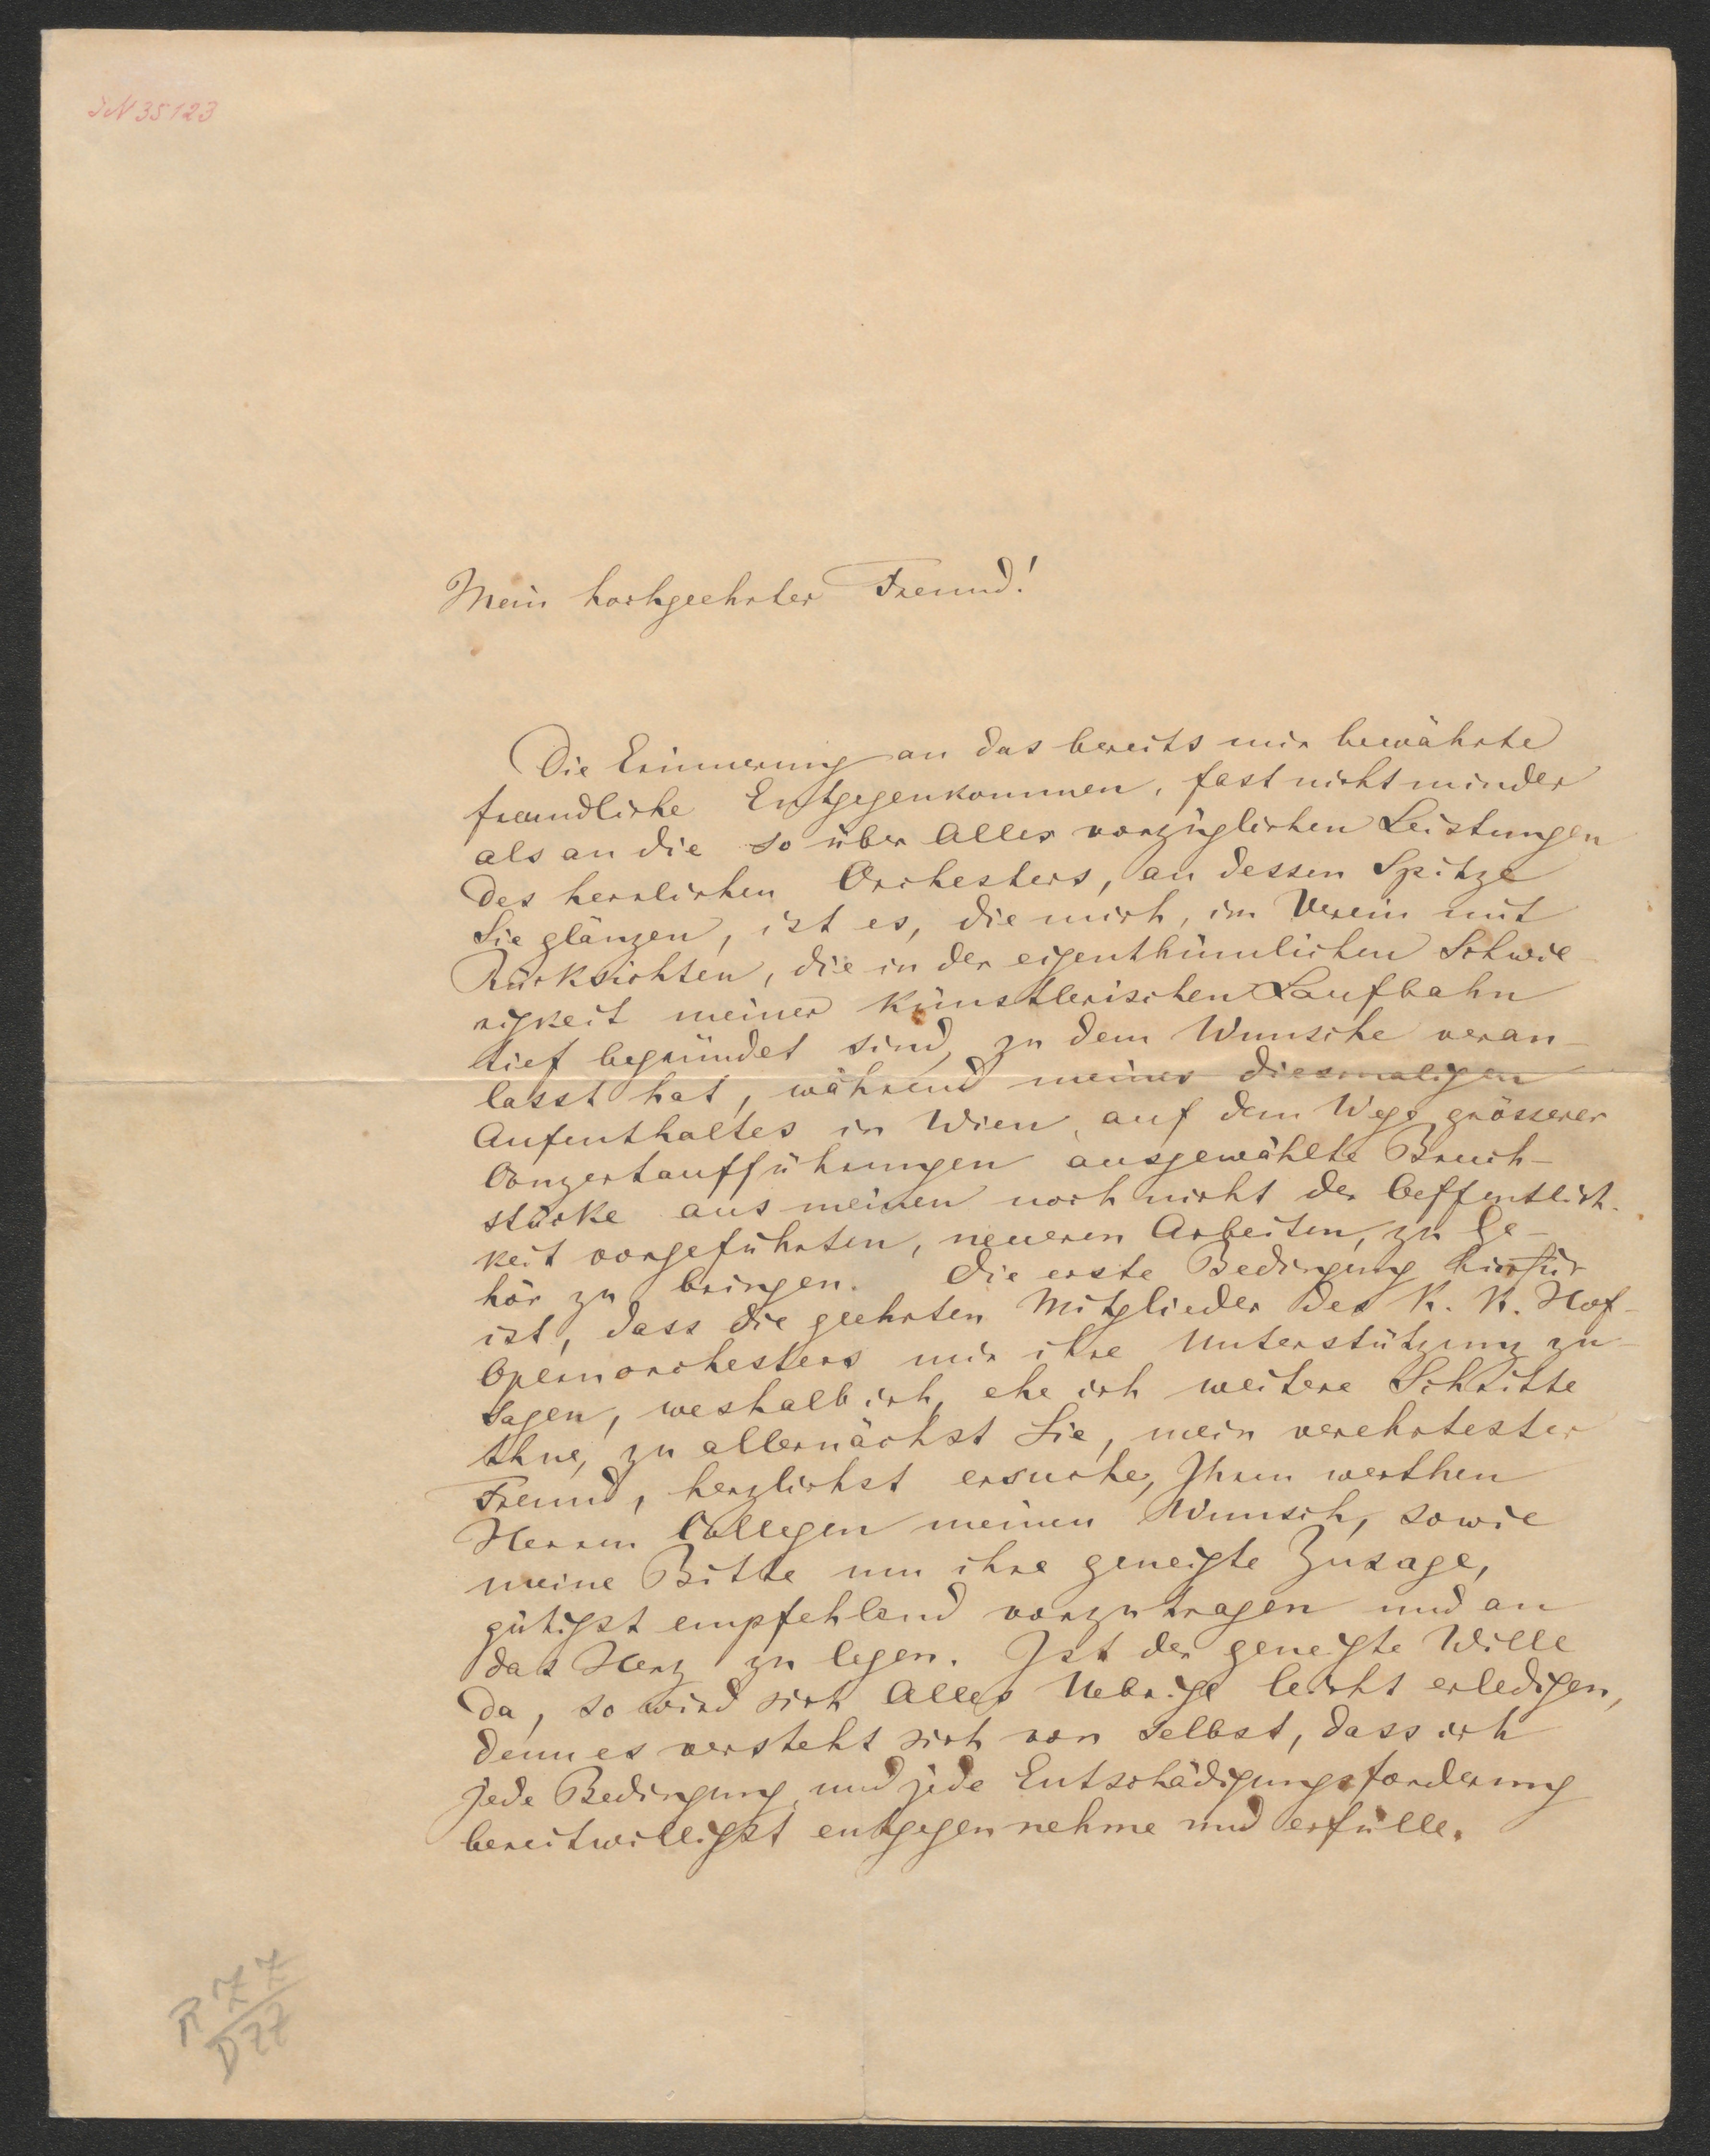 IN 35123
Mein hochgeehrter Freund!
Die Erinnerung an das bereits mir bewährte
freundliche Entgegenkommen, fast nicht minder
als an die so über Alles vorzüglichen Leistungen
des herrlichen Orchesters, an dessen Spitze
Sie glänzen, ist es, die mich, im Verein mit
Rücksichten, die in der eigenthümlichen Schwie-
rigkeit meiner künstlerischen Laufbahn
tief begründet sind, zu dem Wunsche veran-
lasst hat, während meines diesmaligen
Aufenthaltes in Wien, auf dem Wege grösserer
Conzertaufführungen ausgewählte Bruch-
stücke aus meinen noch nicht der Oeffentlich-
keit vorgeführten, neueren Arbeiten, zu Ge-
hör zu bringen. Die erste Bedingung hierfür
ist, dass die geehrten Mitglieder des K. K. Hof-
Opernorchesters mir ihre Unterstützung zu-
sagen, weshalb ich, ehe ich weitere Schritte
thue, zu allernächst Sie, mein verehrtester
Freund, herzlichst ersuche, Ihren werthen
Herren Collegen meinen Wunsch, sowie
meine Bitte um ihre geneigte Zusage,
gütigst empfehlend vorzutragen und an
das Herz zu legen. Ist der geneigte Wille
da, so wird sich Alles Uebrige leicht erledigen,
denn es versteht sich von selbst, dass ich
jede Bedingung und jede Entschädigungsforderung
bereitwilligst entgegen nehme und erfülle.